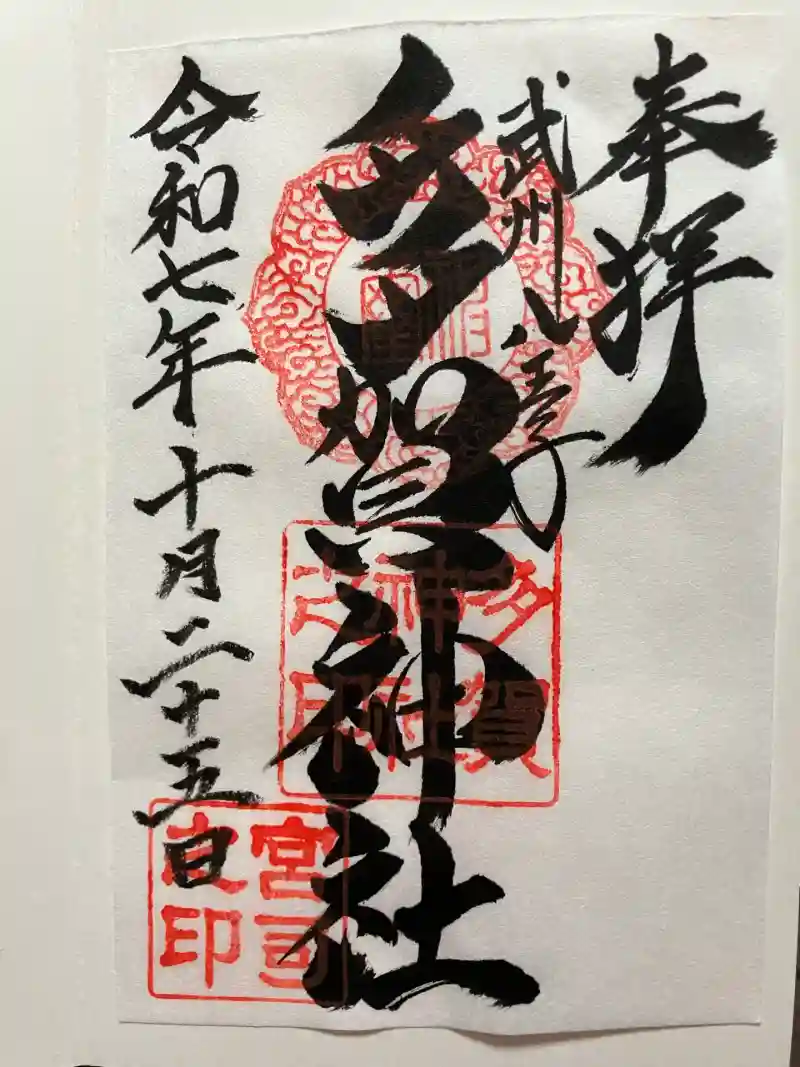 奉拝
武州八王子
多賀神社
令和七年十月二十五日
多賀
神社
之印
宮司
之印